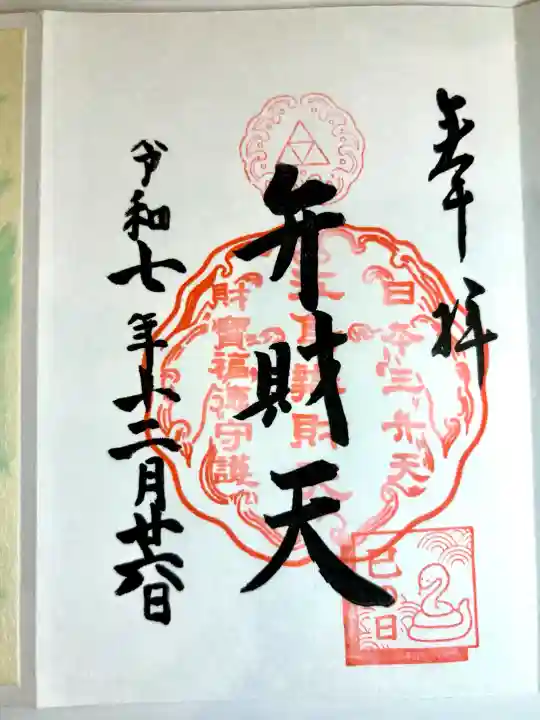 奉拝
日本三弁天
弁財天
財寶福徳守護
令和七年十二月廿六日
巳の日